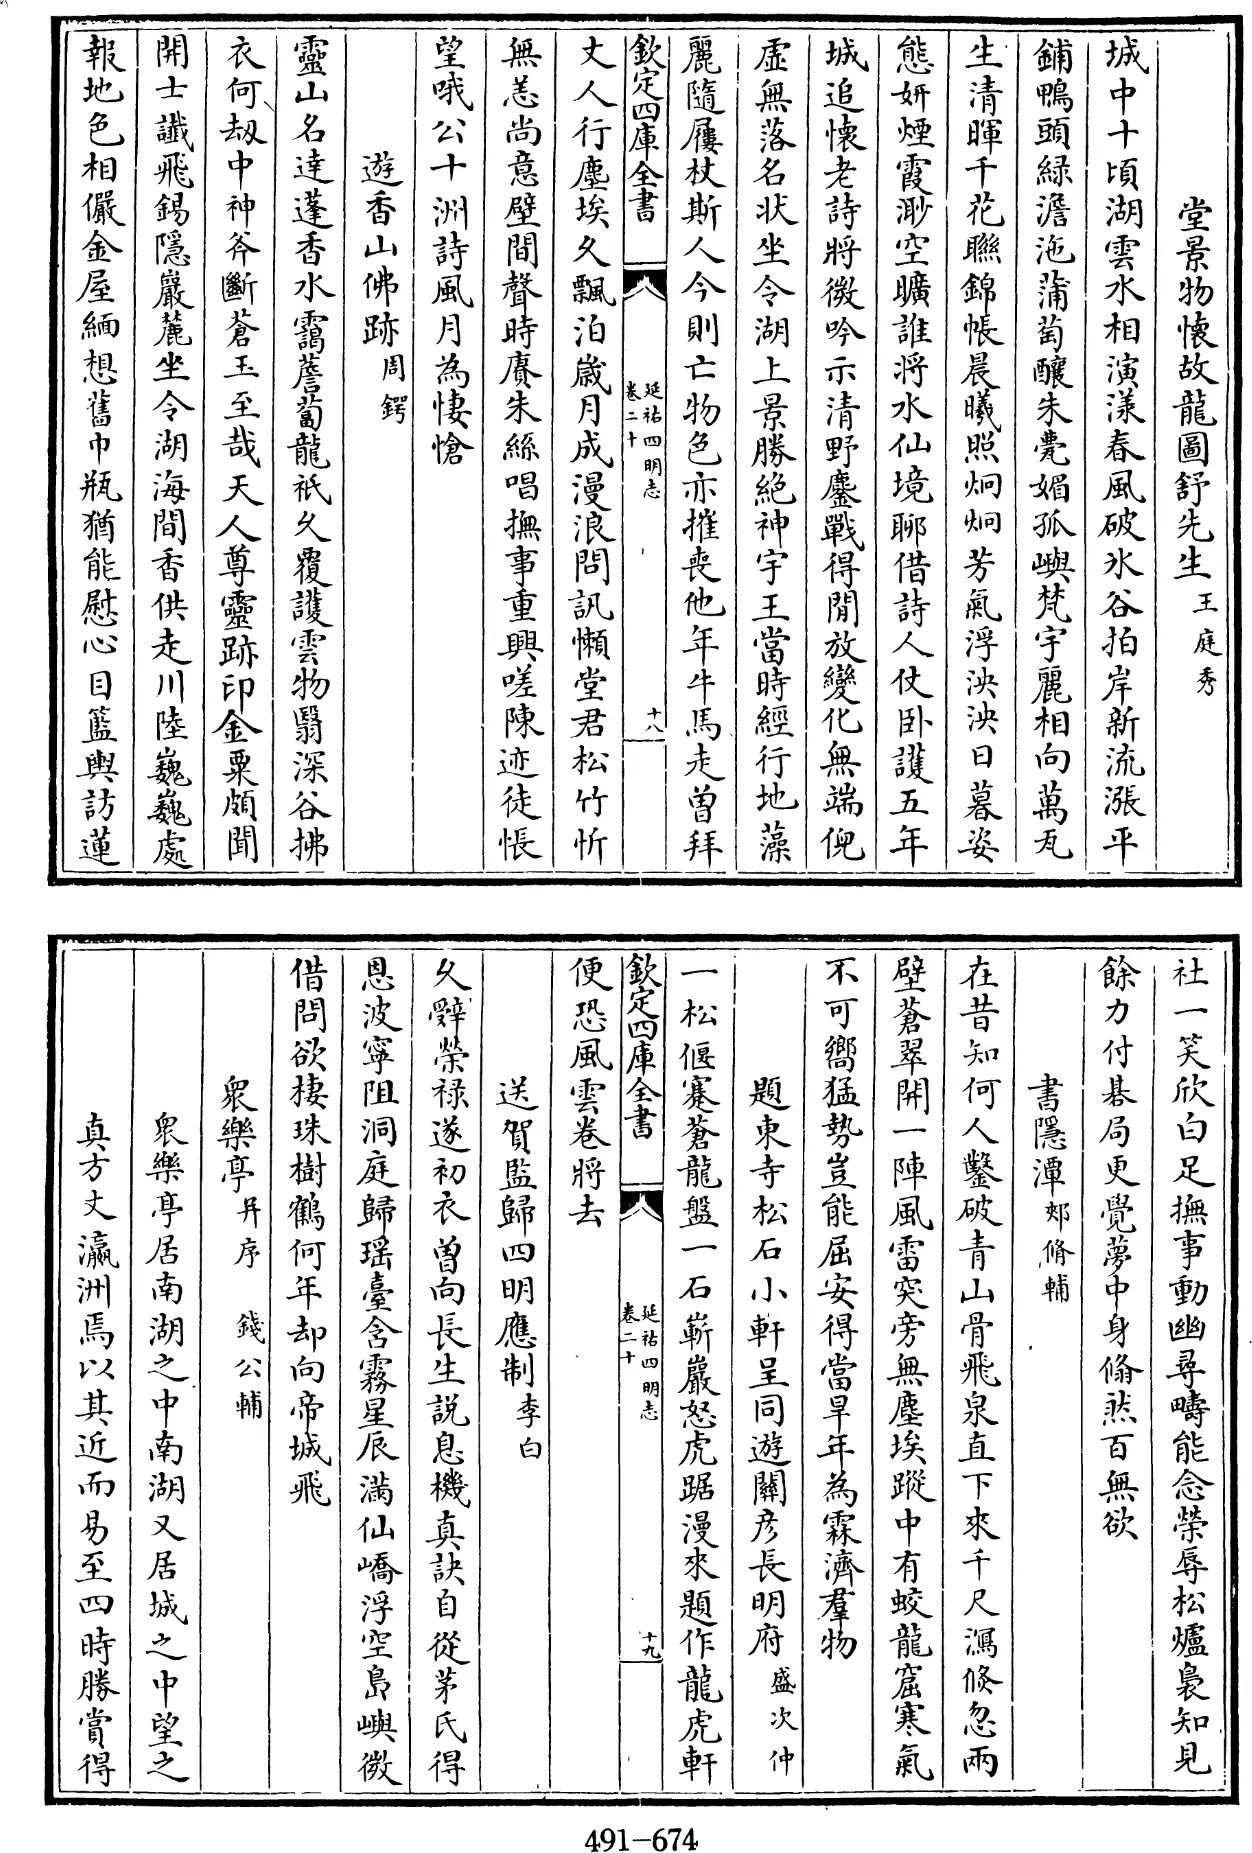 堂景物懷故龍圖舒先生王庭秀
城中十頃湖雲水相演漾春風破氷谷拍岸新流漲平
鋪鴨頭綠澹沲蒲萄釀朱甍媚孤嶼梵宇麗相向萬瓦
生清暉千花聯錦帳晨曦照炯炯芳氣浮泱泱日暮姿
態妍煙霞渺空曠誰將水仙境聊借詩人仗卧護五年
城追懷老詩將微吟示清野鏖戰得閒放變化無端倪
虛無落名狀坐令湖上景勝絶神宇王當時經行地藻
麗隨屨杖斯人今則亡物色亦摧喪他年牛馬走曾拜
欽定四庫全書
延祐四明志
卷二十
十八
丈人行塵埃久飄泊歲月成漫浪問訊懶堂君松竹忻
無恙尚意壁間聲時賡朱絲唱撫事重興嗟陳迹徒悵
望哦公十洲詩風月為悽愴
遊香山佛跡周鍔
靈山名達蓬香水靄薝蔔龍祇久覆護雲物翳深谷拂
衣何刼中神斧斷蒼玉至哉天人尊靈跡印金粟頗聞
開士讖飛錫隱巖麓坐令湖海間香供走川陸巍巍處
報地色相儼金屋緬想舊巾瓶猶能慰心目籃輿訪蓮
社一笑欣白足撫事動幽尋疇能念榮辱松爐裊知見
餘力付碁局更覺夢中身翛然百無欲
書隱潭郟修輔
在昔知何人鑿破青山骨飛泉直下來千尺瀉倏忽兩
壁蒼翠開一陣風雷突旁無塵埃蹤中有蛟龍窟寒氣
不可嚮猛勢豈能屈安得當旱年為霖濟羣物
題東寺松石小軒呈同遊關彦長明府盛次仲
一松偃蹇蒼龍盤一石嶄巖怒虎踞漫來題作龍虎軒
欽定四庫全書
延祐四明志
卷二十
十九
便恐風雲卷將去
送賀監歸四明應制李白
久辭榮祿遂初衣曾向長生說息機真訣自從茅氏得
恩波寧阻洞庭歸瑶臺含霧星辰滿仙嶠浮空島嶼微
借問欲棲珠樹鶴何年却向帝城飛
衆樂亭并序　錢公輔
衆樂亭居南湖之中南湖又居城之中望之
真方丈瀛洲焉以其近而易至四時勝賞得
491-674